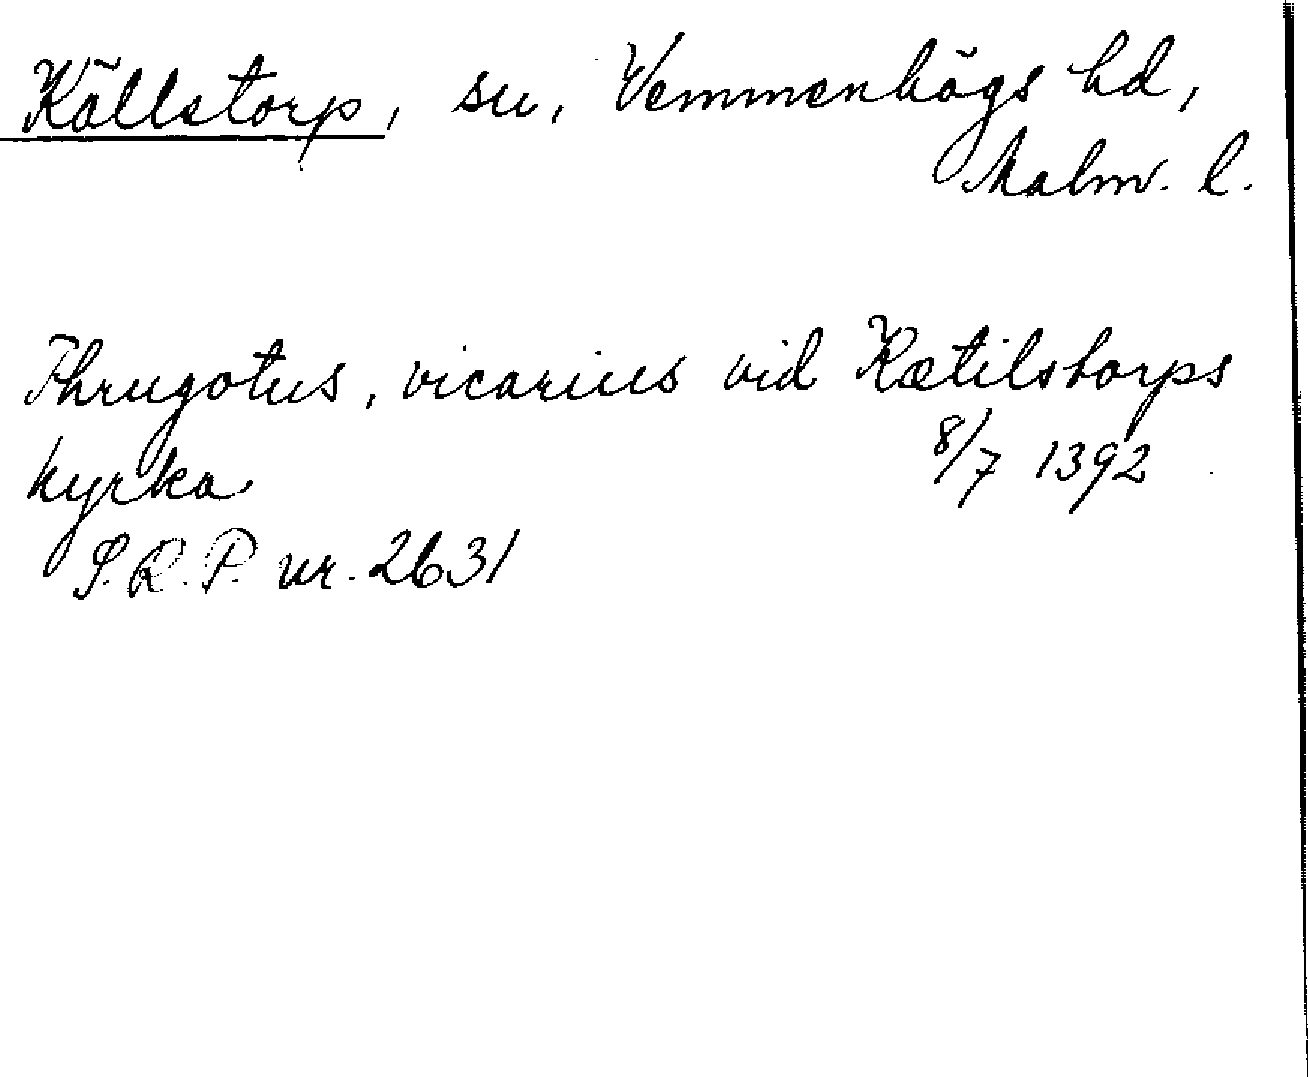 Källstorp, sn, Vemmenhögs hd,
Malm. l.
Thrugotus, vicarius vid Kætilstorps
kyrka 8/7 1392
S.R.P. nr. 2631